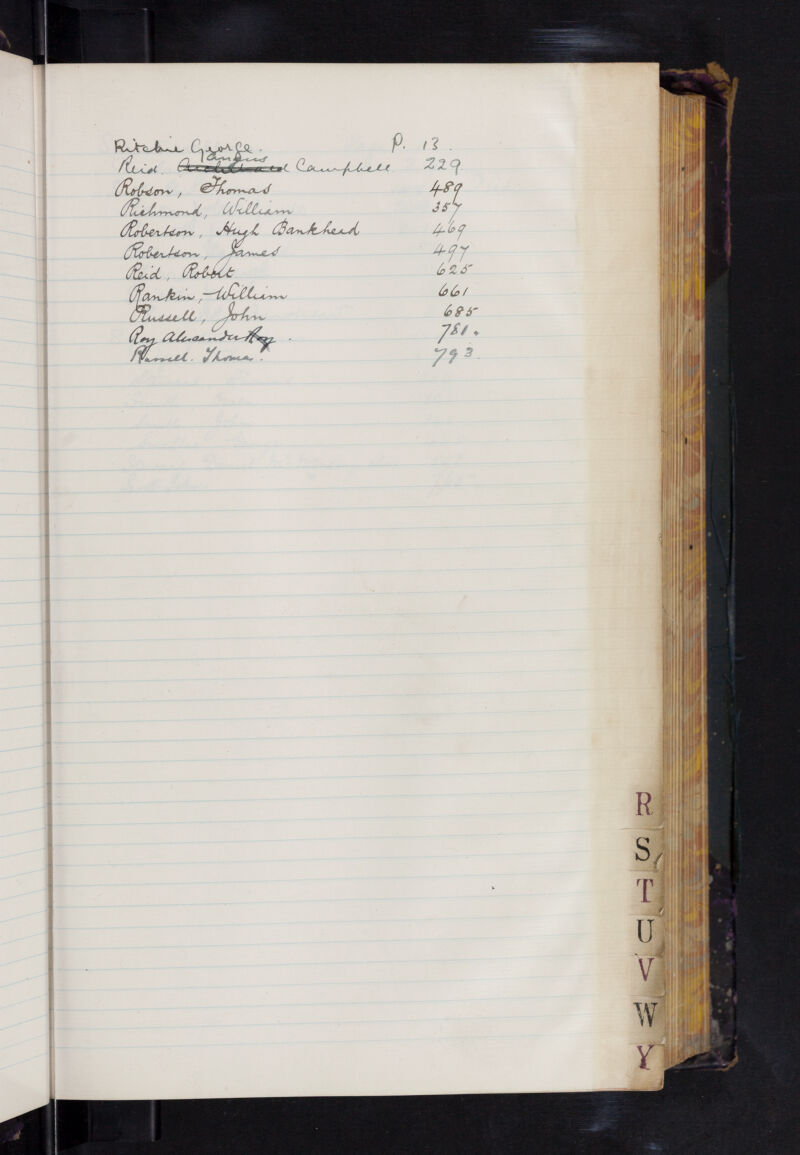 Ritchie George. P. 13.
Angus
Reid, Archibald Campbell 229
Robson, Thomas 489
Richmond, William 357
Robertson, Hugh Bankhead 469
Robertson, James 497
Reid, Robert 625
Rankin, William 661
Russell, John 685
Roy Alexander Roy. 781.
Russell. Thomas. 793.
R
S
T
U
V
W
Y